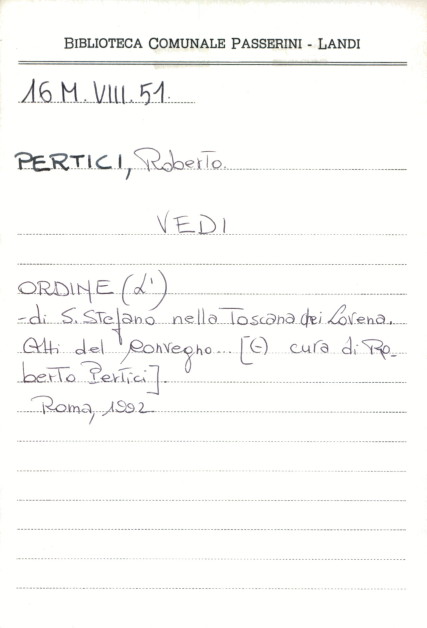 BIBLIOTECA COMUNALE PASSERINI - LANDI
16 M. VIII. 51.
PERTICI, Roberto.
VEDI
ORDINE (L')
-di S. Stefano nella Toscana dei Lorena.
Atti del Convegno... [A cura di Ro-
berto Pertici].
Roma, 1992.